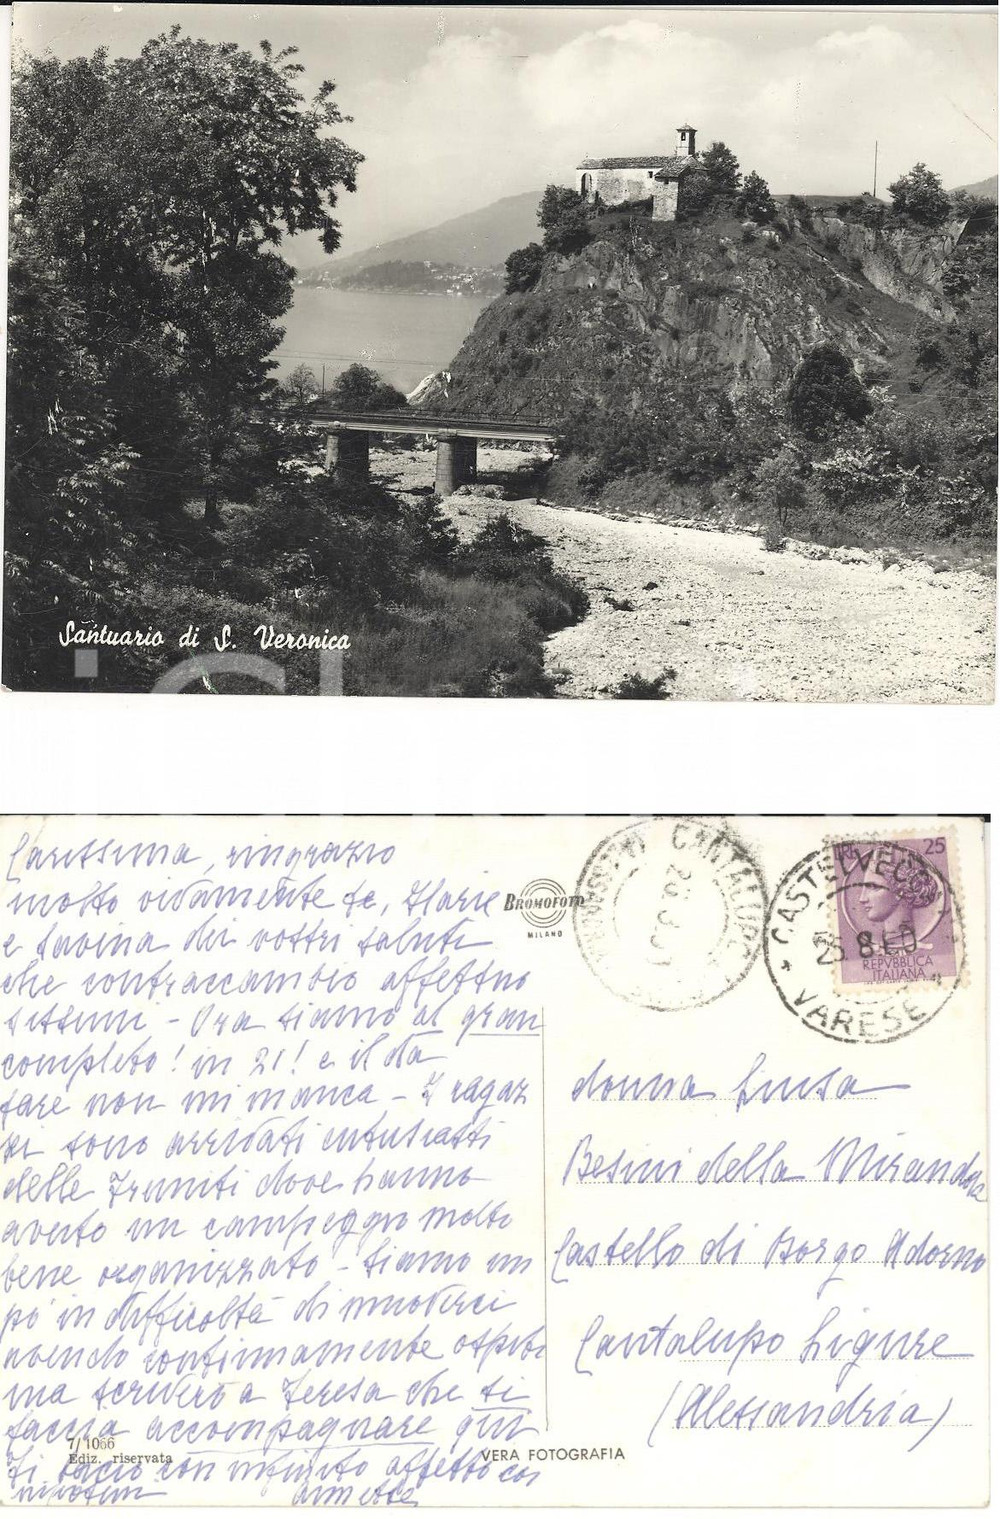 Santuario di S. Veronica
Carissima, ringrazio
molto vivamente te, Ilaria
e Savina dei vostri saluti
che contraccambio affettuo
sissimi - Ora siamo al gran
completo! in 21! e il da
fare non mi manca - I ragaz
zi sono arrivati entusiasti
delle Tremiti dove hanno
avuto un campeggio molto
bene organizzato - Siamo un
po' in difficoltà di muoverci
avendo continuamente ospiti
ma scriverò a Teresa che ti
faccia accompagnare qui
Ti bacio con infinito affetto coi
nipotini
7/1066
Ediz. riservata
BROMOFOTO
MILANO
VERA FOTOGRAFIA
CANTALUPO
CASTELVECC
25 8 60
VARESE
LIRE 25
REPVBBLICA
ITALIANA
donna Luisa
Besini della Miranda
Castello di Borgo Adorno
Cantalupo Ligure
(Alessandria)